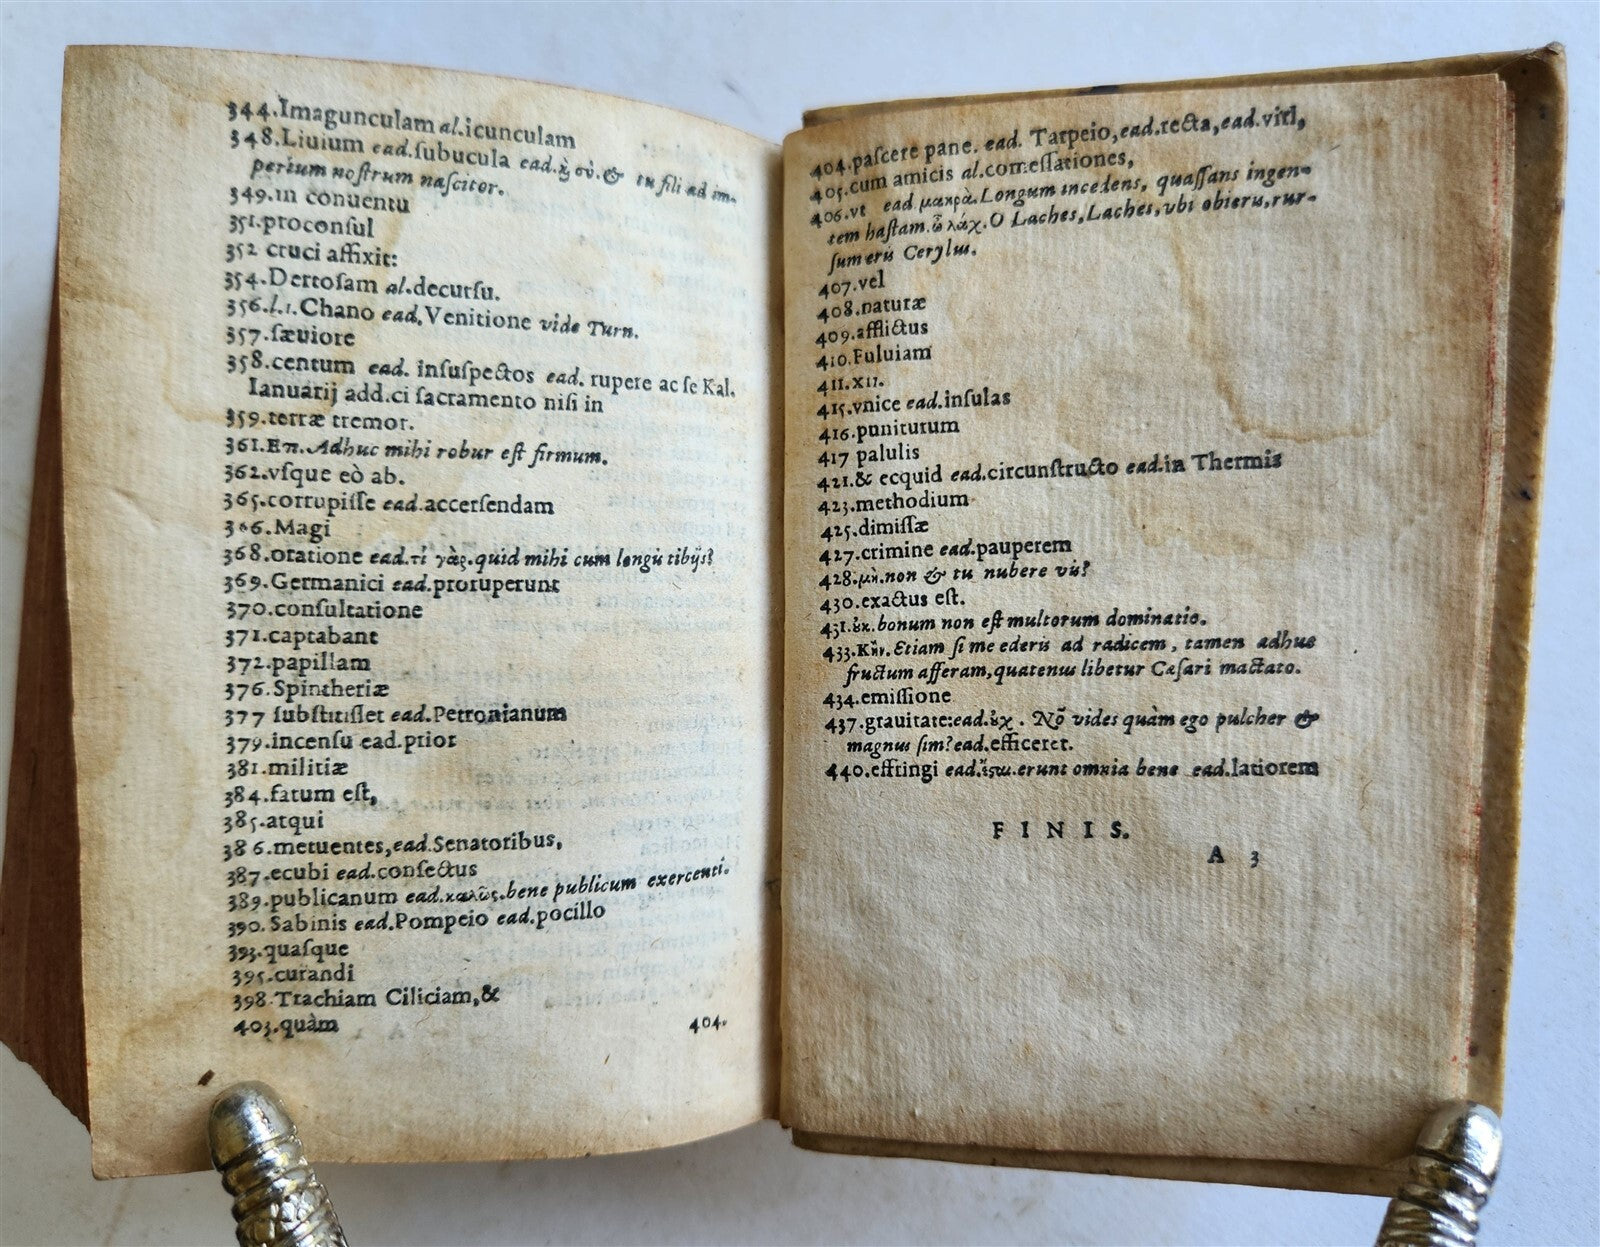 344.Imagunculam al.icunculam
348.Liuium ead.ſubucula ead.ϗ̀ σύ.& tu fili ad im-
perium noſtrum naſcitor.
349.in conuentu
351.proconſul
352 cruci affixit:
354.Dertoſam al.decurſu.
356.l.1.Chano ead.Venitione vide Turn.
357.ſæuiore
358.centum ead. inſuſpectos ead. rupere ac ſe Kal.
Ianuarij add.ci ſacramento niſi in
359.terræ tremor.
361.Επ.Adhuc mihi robur eſt firmum.
362.vſque eò ab.
365.corrupiſſe ead.accerſendam
366.Magi
368.oratione ead.τί γὰρ.quid mihi cum longis tibijs?
369.Germanici ead.proruperunt
370.conſultatione
371.captabant
372.papillam
376.Spintheriæ
377 ſubſtitiſſet ead.Petronianum
379.incenſu ead.prior
381.militiæ
384.fatum eſt,
385.atqui
386.metuentes,ead.Senatoribus,
387.ecubi ead.conſectus
389.publicanum ead.καλῶς.bene publicum exercenti.
390.Sabinis ead.Pompeio ead.pocillo
393.quaſque
395.curandi
398.Trachiam Ciliciam,&
403.quàm
404.
404.paſcere pane. ead. Tarpeio,ead.recta,ead.vitl,
405.cum amicis al.comeſſationes,
406.vt ead.μακρὰ.Longum incedens, quaſſans ingen-
tem haſtam.ὦ λάχ.O Laches,Laches,vbi obieru,rur-
ſum eris Cerylus.
407.vel
408.naturæ
409.afflictus
410.Fuluiam
411.XII.
415.vnice ead.inſulas
416.puniturum
417 palulis
421.& ecquid ead.circunſtructo ead.in Thermis
423.methodium
425.dimiſſæ
427.crimine ead.pauperem
428.μὴ.non & tu nubere vis?
430.exactus eſt.
431.ȣκ.bonum non eſt multorum dominatio.
433.Κἤν.Etiam ſi me ederis ad radicem, tamen adhuc
fructum afferam,quatenus libetur Cæſari mactato.
434.emiſſione
437.grauitate:ead.ȣχ. Nõ vides quàm ego pulcher &
magnus ſim?ead.efficeret.
440.effringi ead.ἔςαι.erunt omnia bene ead.latiorem
FINIS.
A 3